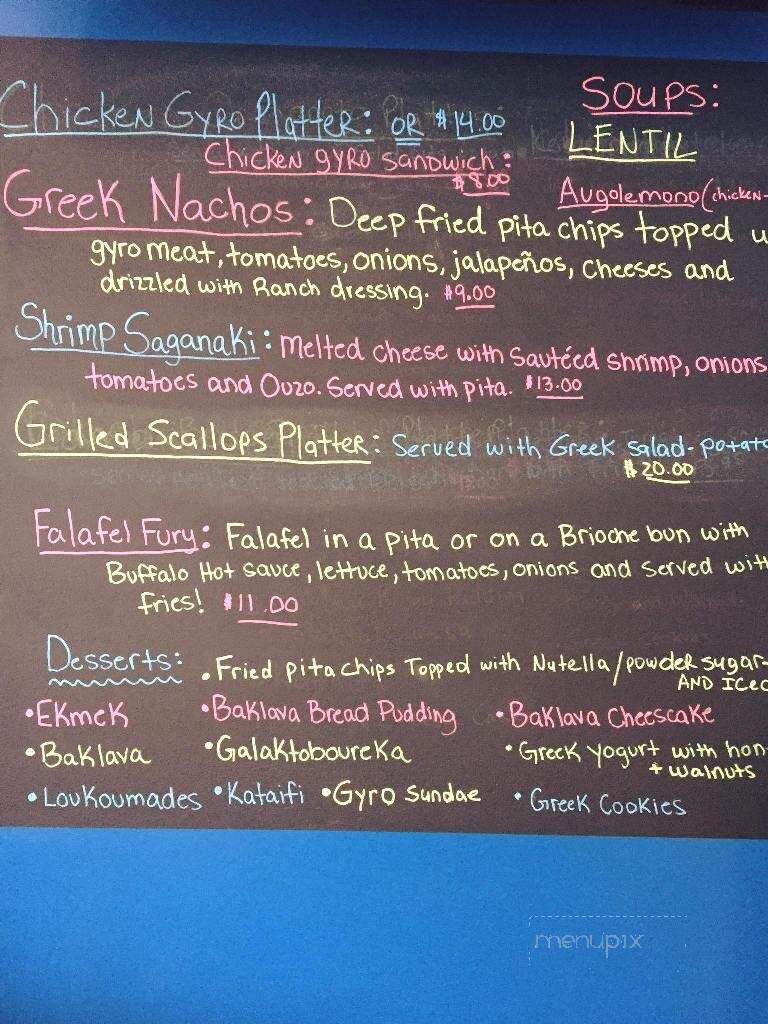 Chicken Gyro Platter: OR $14.00
Chicken gyro sandwich:
$8.00
Soups:
LENTIL
Augolemono (chicken-
Greek Nachos: Deep fried pita chips topped w
gyro meat, tomatoes, onions, jalapeños, cheeses and
drizzled with Ranch dressing. $9.00
Shrimp Saganaki: Melted cheese with Sautéed shrimp, onions
tomatoes and Ouzo. Served with pita. $13.00
Grilled Scallops Platter: Served with Greek salad - potato
$20.00
Falafel Fury: Falafel in a pita or on a Brioche bun with
Buffalo Hot sauce, lettuce, tomatoes, onions and served with
fries! $11.00
Desserts: • Fried pita chips Topped with Nutella/powder sugar-
AND Iced
• Ekmek • Baklava Bread Pudding • Baklava Cheescake
• Baklava • Galaktoboureka • Greek yogurt with hon
+ walnuts
• Loukoumades • Kataifi • Gyro Sundae • Greek Cookies
menupix